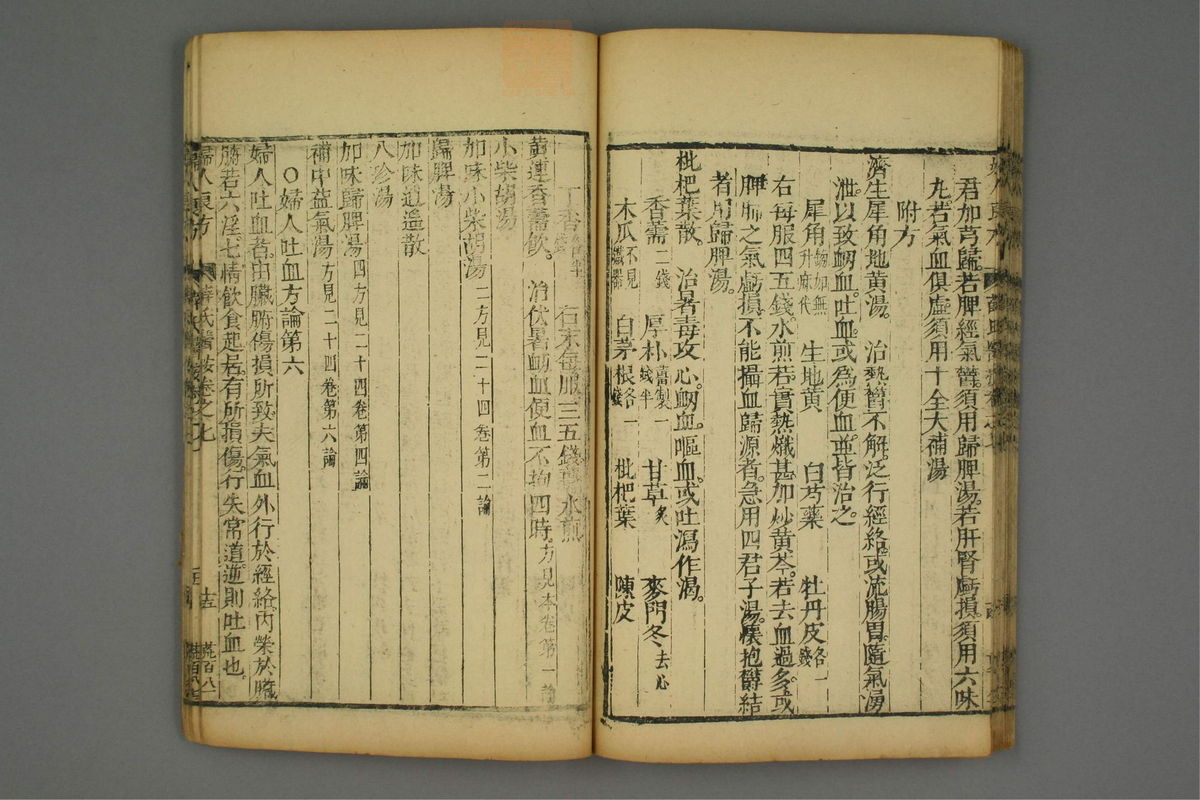 君加芎歸若脾經氣鬱須用歸脾湯若肝腎虧損須用六味
丸若氣血俱虛須用十全大補湯
附方
濟生犀角地黃湯 治熱鬱不解泛行經絡或流腸胃隨氣湧
泄以致衂血吐血或為便血並皆治之
犀角 鎊如無升麻代 生地黃 白芍藥 牡丹皮 各一錢
右每服四五錢水煎若實熱熾甚加炒黃芩若去血過多或
脾肺之氣虧損不能攝血歸源者急用四君子湯懷抱鬱結
者用歸脾湯
枇杷葉散 治暑毒攻心衂血嘔血或吐瀉作渴
香薷 二錢 厚朴 薑製一錢半 甘草 炙 麥門冬 去心
木瓜 不見鐵器 白茅根 各一錢 枇杷葉 陳皮
丁香 右末每服三五錢 水煎
黃連香薷飲 治伏暑衂血便血不拘四時方見本卷第一論
小柴胡湯
加味小柴胡湯 二方見二十四卷第二論
歸脾湯
加味逍遙散
八珍湯
加味歸脾湯 四方見二十四卷第四論
補中益氣湯 方見二十四卷第六論
○婦人吐血方論第六
婦人吐血者由臟腑傷損所致夫氣血外行於經絡內榮於臟
腑若六淫七情飲食起居有所損傷行失常道逆則吐血也
婦人良方 薛氏醫按卷之七